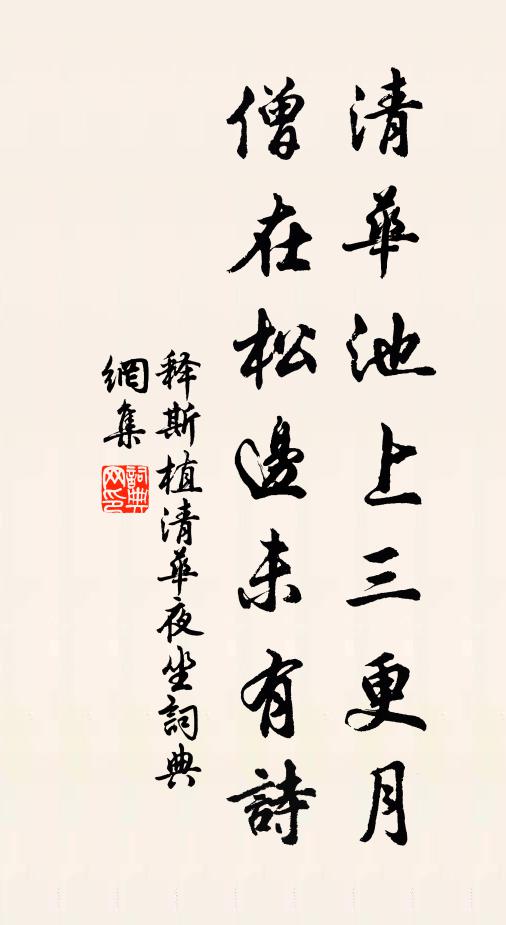 清華池上三更月
僧在松邊未有詩
释斯植清華夜坐詞典
網集
詞典
网印